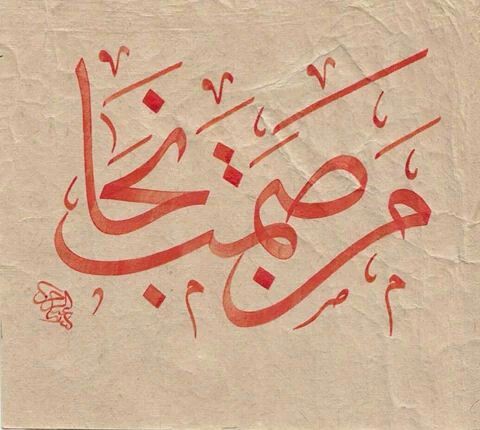 مَن صَمَتَ نَجَا